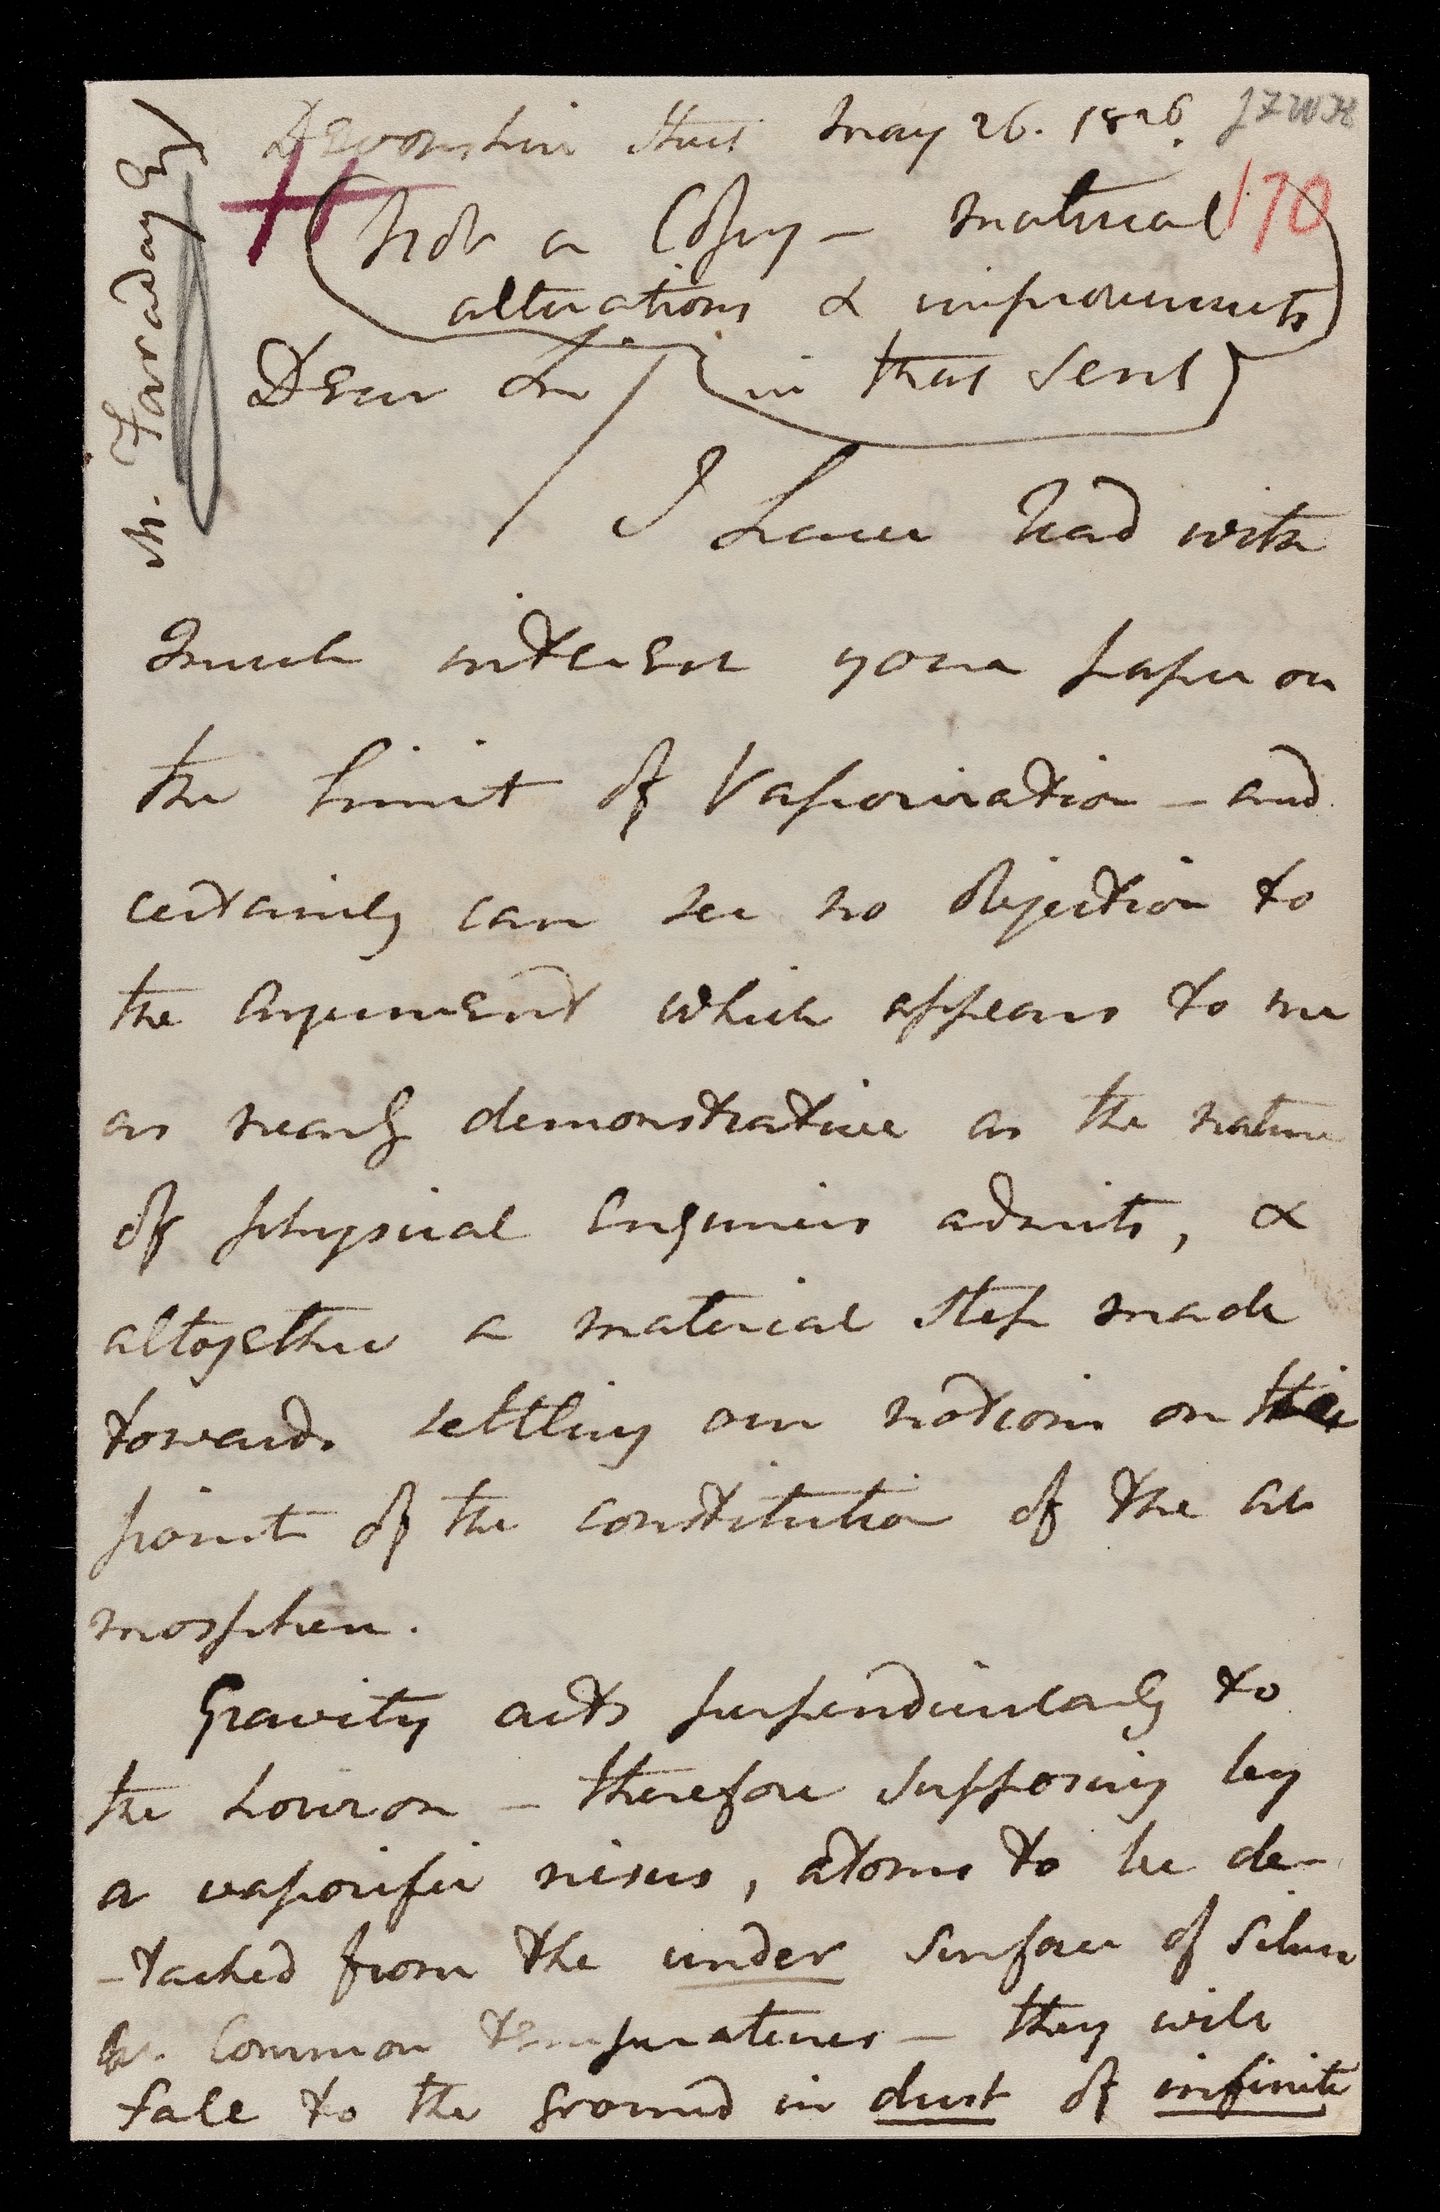 Devonshire Street May 26. 1826. JFWH
170
(Not a Copy – material
alterations & improvements
in that sent)
M. Faraday Esq
Dear Sir
I have read with
much interest your paper on
the limit of Vaporization – and
certainly can see no objection to
the argument which appears to me
as nearly demonstrative as the nature
of physical enquiries admits, &
altogether a material step made
towards settling our notions on this
point of the constitution of the at
mosphere.
Gravity acts perpendicularly to
the horizon – therefore supposing by
a vaporific nisus, atoms to be de-
-tached from the under surface of silver
at common temperatures – they will
fall to the ground in dust of infinite